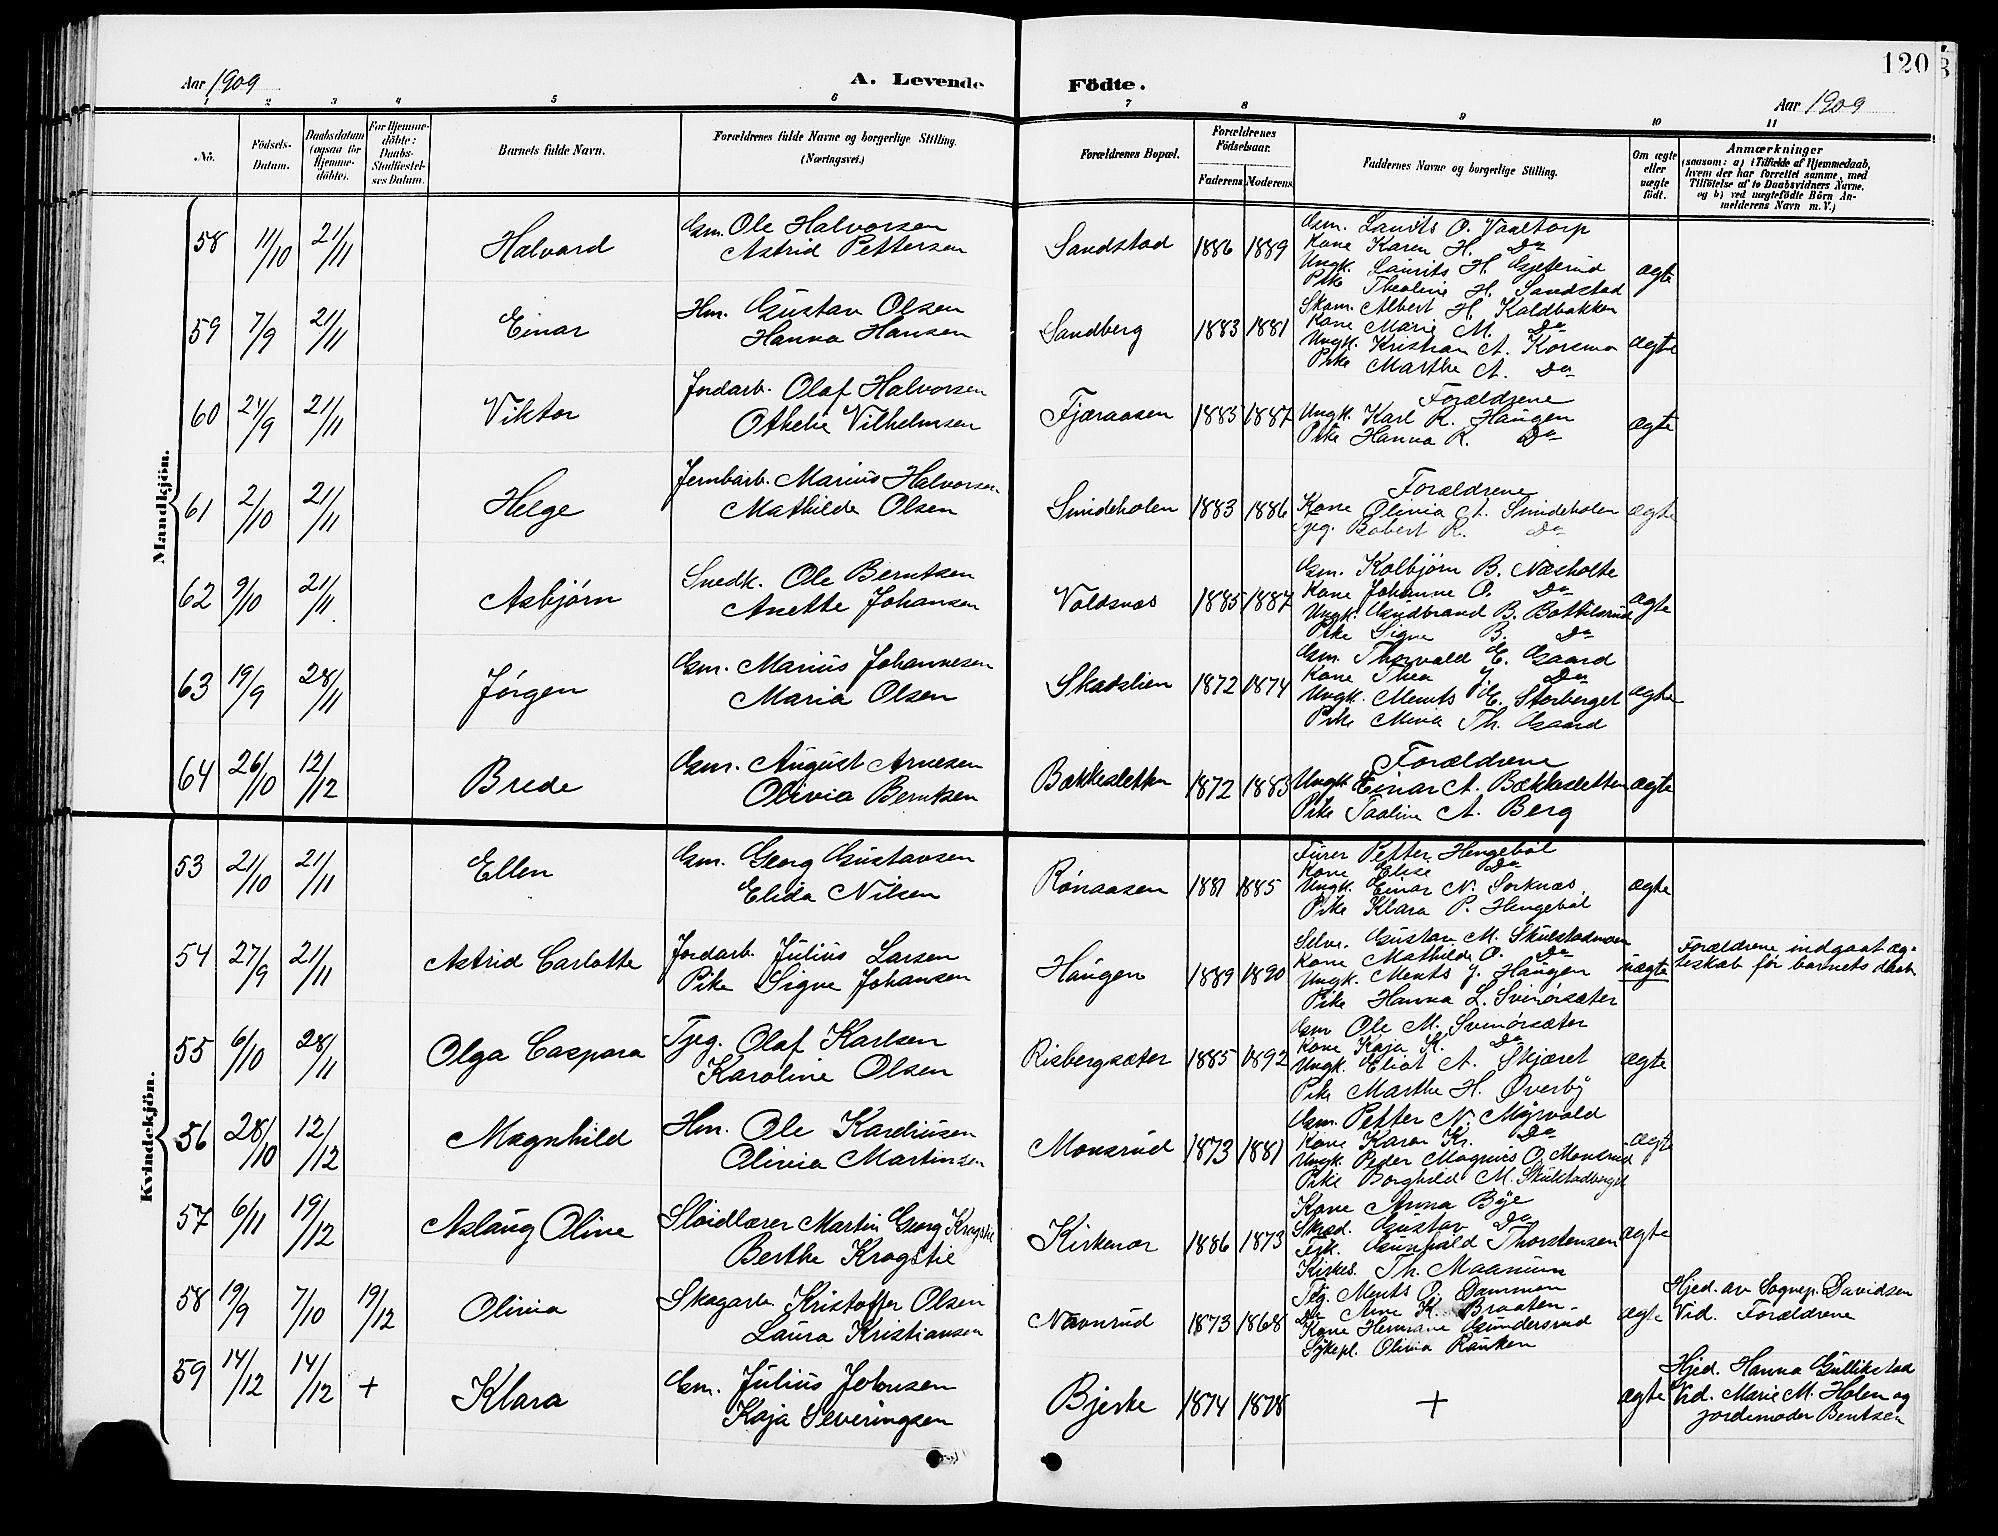 120
Aar 1909
A. Levende Födte.
Aar 1909
1 2 3 4 5 6 7 8 9 10 11
No.
Födsels-Datum.
Daabsdatum (ogsaa for Hjemme-döbte).
For Hjemme-döbte: Daabs-Stadfæstel-ses Datum.
Barnets fulde Navn.
Forældrenes fulde Navne og borgerlige Stilling. (Næringsvei.)
Forældrenes Bopæl.
Forældrenes Födselsaar.
Faderens Moderens
Faddernes Navne og borgerlige Stilling.
Om ægte eller uægte födt.
Anmærkninger
(saasom: a) i Tilfælde af Hjemmedaab,
hvem der har forrettet samme, med
Tilföielse af to Daabsvidners Navne,
og b) ved uægtefödte Börn An-
melderens Navn m. V.)
Mandkjön.
58 11/10 21/11 Halvard
Gm. Ole Halvorsen
Astrid Pettersen
Sandstad 1886 1889
Gm. Laurits O. Vaaltorp
Kone Karen H. Do
Ungk. Laurits H. Gjeterud
Pike Theoline H. Sandstad
ægte
59 7/9 21/11 Einar
Hm. Gustav Olsen
Hanna Hansen
Sandberg 1883 1881
Skom. Albert H. Kaldbakken
Kone Marie M. Do
Ungk. Kristian A. Korsmo
Pike Marthe A. Do
ægte
60 24/9 21/11 Viktor
Jordarb. Olaf Halvorsen
Othelie Vilhelmsen
Fjæraasen 1883 1887
Forældrene
Ungk. Karl R. Haugen
Pike Hanna R. Do
ægte
61 2/10 21/11 Helge
Jernbarb. Marius Halvorsen
Mathilde Olsen
Smideholen 1883 1886
Forældrene
Kone Olivia A. Smideholen
Tjeg. Robert R. Do
ægte
62 9/10 21/11. Asbjørn
Snedk. Ole Berntsen
Anette Johansen
Voldsnæs 1885 1887
Gm. Kolbjørn B. Næsholte
Kone Johanne O. Do
Ungk. Gudbrand B. Bottilsrud
Pike Signe B. Do
ægte
63 19/9 28/11 Jørgen
Gm. Marius Johannesen
Maria Olsen
Skadslien 1872 1874
Gm. Thorvald E. Gaard
Kone Thea J. Do
Ungk. Ments E. Storberget
Pike Mina Th. Gaard
ægte
64 26/10 12/12 Brede
Gm. August Arnesen
Olivia Berntsen
Bækkesletten 1872 1883
Forældrene
Ungk. Einar A. Bækkesletten
Pike Taaline A. Berg
ægte
Kvindekjön.
53 21/10 21/11 Ellen
Gm. Georg Gustavsen
Elida Nilsen
Rønaasen 1881 1885
Furer Petter Hengebøl
Kone Elise Do
Ungk. Einar N. Sorknæs
Pike Klara P. Hengebøl
ægte
54 27/9 21/11 Astrid Carlotte
Jordarb. Julius Larsen
Pike Signe Johansen
Haugen 1889 1890
Selve. Gustav M. Skulstadmoen
Kone Mathilde O. Do
Ungk. Ments J. Haugen
Pike Hanna L. Svenørsæter
uægte
Forældrene indgaat æg-
teskab før barnets daab
55 6/10 28/11 Olga Caspara
Tjeg. Olaf Karlsen
Karoline Olsen
Risbergsæter 1885 1892
Gm Ole M. Svenørsæter
Kone Kaja K. Do
Ungk. Eliot A. Skjæret
Pike Marthe H. Øverby
ægte
56 28/10 12/12 Magnhild
Hm. Ole Kareliusen
Olivia Martinsen
Monsrud 1873 1881
Gm. Petter N. Myrvold
Kone Karen Kr. Do
Ungk. Peder Magnus O. Monsrud
Pike Borghild M. Skulstadberget
ægte
57 6/11 19/12 Aslaug Oline
Sløidlærer Martin Georg Krogstie
Berthe Krogstie
Kirkenær 1886 1873
Kone Anna Bye
Skræd. Gustav Do
Frk. Gunhild Thorstensen
Kirkes. Th. Maanum
ægte
58 19/9 7/10 19/12 Olivia
Skogarb. Kristoffer Olsen
Laura Kristiansen
Navnrud 1873 1868
Tjg. Ments O. Dammen
Do Arne K. Braaten
Kone Hermane Gundersrud
Sykepl. Olivia Rauken
ægte
Hjed. av Sognep. Davidsen
Vid. Forældrene
59 14/12 14/12 + Klara
Gm. Julius Johnsen
Kaja Severingsen
Bjerke 1874 1878
+
ægte
Hjed. Hanna Gullikstad
Vid. Marie M. Holen og
jordemoder Bentsen